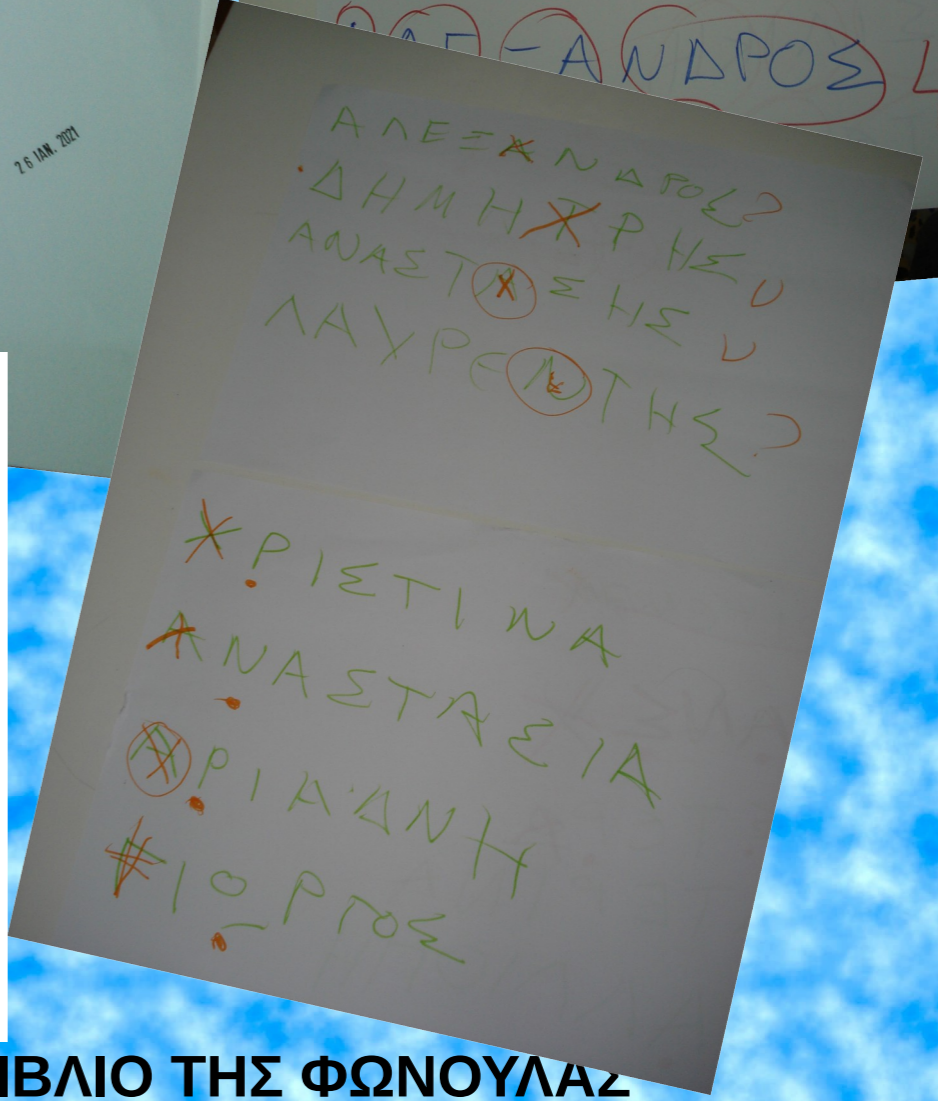 ΑΝΔΡΟΣ
26 ΙΑΝ. 2021
ΑΛΕΞΑΝΔΡΟΣ ?
ΔΗΜΗΤΡΗΣ
ΑΝΑΣΤΑΣΗΣ
ΛΑΥΡΕΝΤΗΣ ?
ΧΡΙΣΤΙΝΑ
ΑΝΑΣΤΑΣΙΑ
ΑΡΙΑΔΝΗ
ΓΙΟΡΓΟΣ
ΙΒΛΙΟ ΤΗΣ ΦΩΝΟΥΛΑΣ